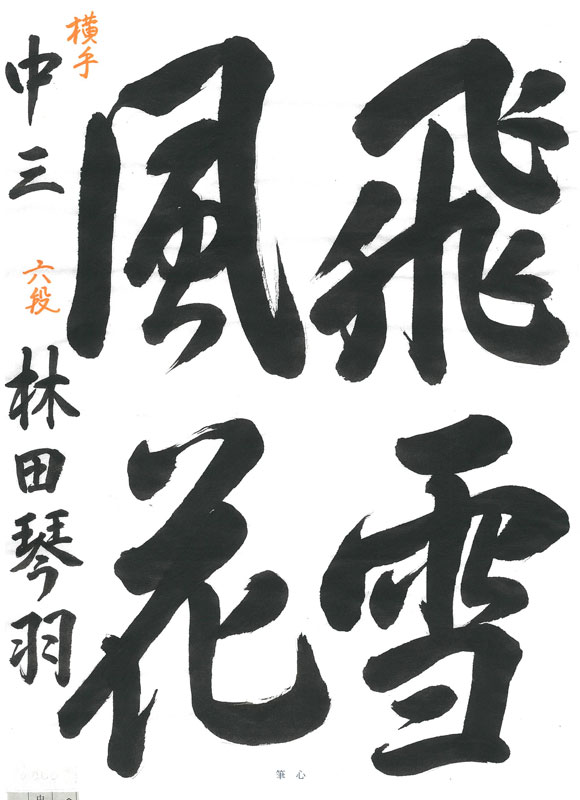 飛雪
風花
横手
中三
六段
林田琴羽
心筆